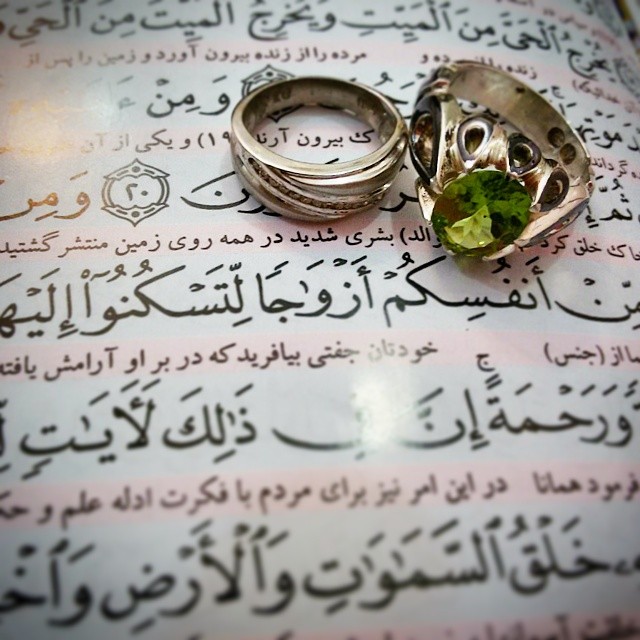 يُخْرِجُ ٱلْحَىَّ مِنَ ٱلْمَيِّتِ وَيُخْرِجُ ٱلْمَيِّتَ مِنَ ٱلْحَىِّ
مرده را از زنده بیرون آورد و زمین را پس از
وَمِنْ
بیرون آرند (۱۹) و یکی از آن
ثُمَّ إِ ٢٠ وَمِنْ
خاک خلق کرد بشری شدید در همه روی زمین منتشر گشتید
مِّنْ أَنفُسِكُمْ أَزْوَٰجًا لِّتَسْكُنُوٓا۟ إِلَيْهَا
از (جنس) خودتان جفتی بیافرید که در بر او آرامش یافته
وَرَحْمَةً ۚ إِنَّ فِى ذَٰلِكَ لَءَايَٰتٍ
فرمود همانا در این امر نیز برای مردم با فکرت ادله علم و
خَلْقُ ٱلسَّمَٰوَٰتِ وَٱلْأَرْضِ وَٱخْ